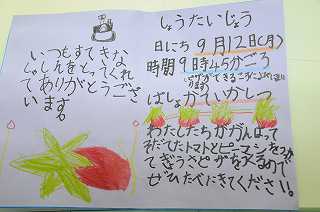 いつもすてきな
しゃしんをとってくれ
てありがとうござ
います。
しょうたいじょう
日にち 9月12日(月)
時間 9時45分ごろ
ばしょ かていかしつ
わたしたちががんばって
そだてたトマトとピーマンをつかっ
てぎょうざピザを作るので
ぜひたべにきてください。